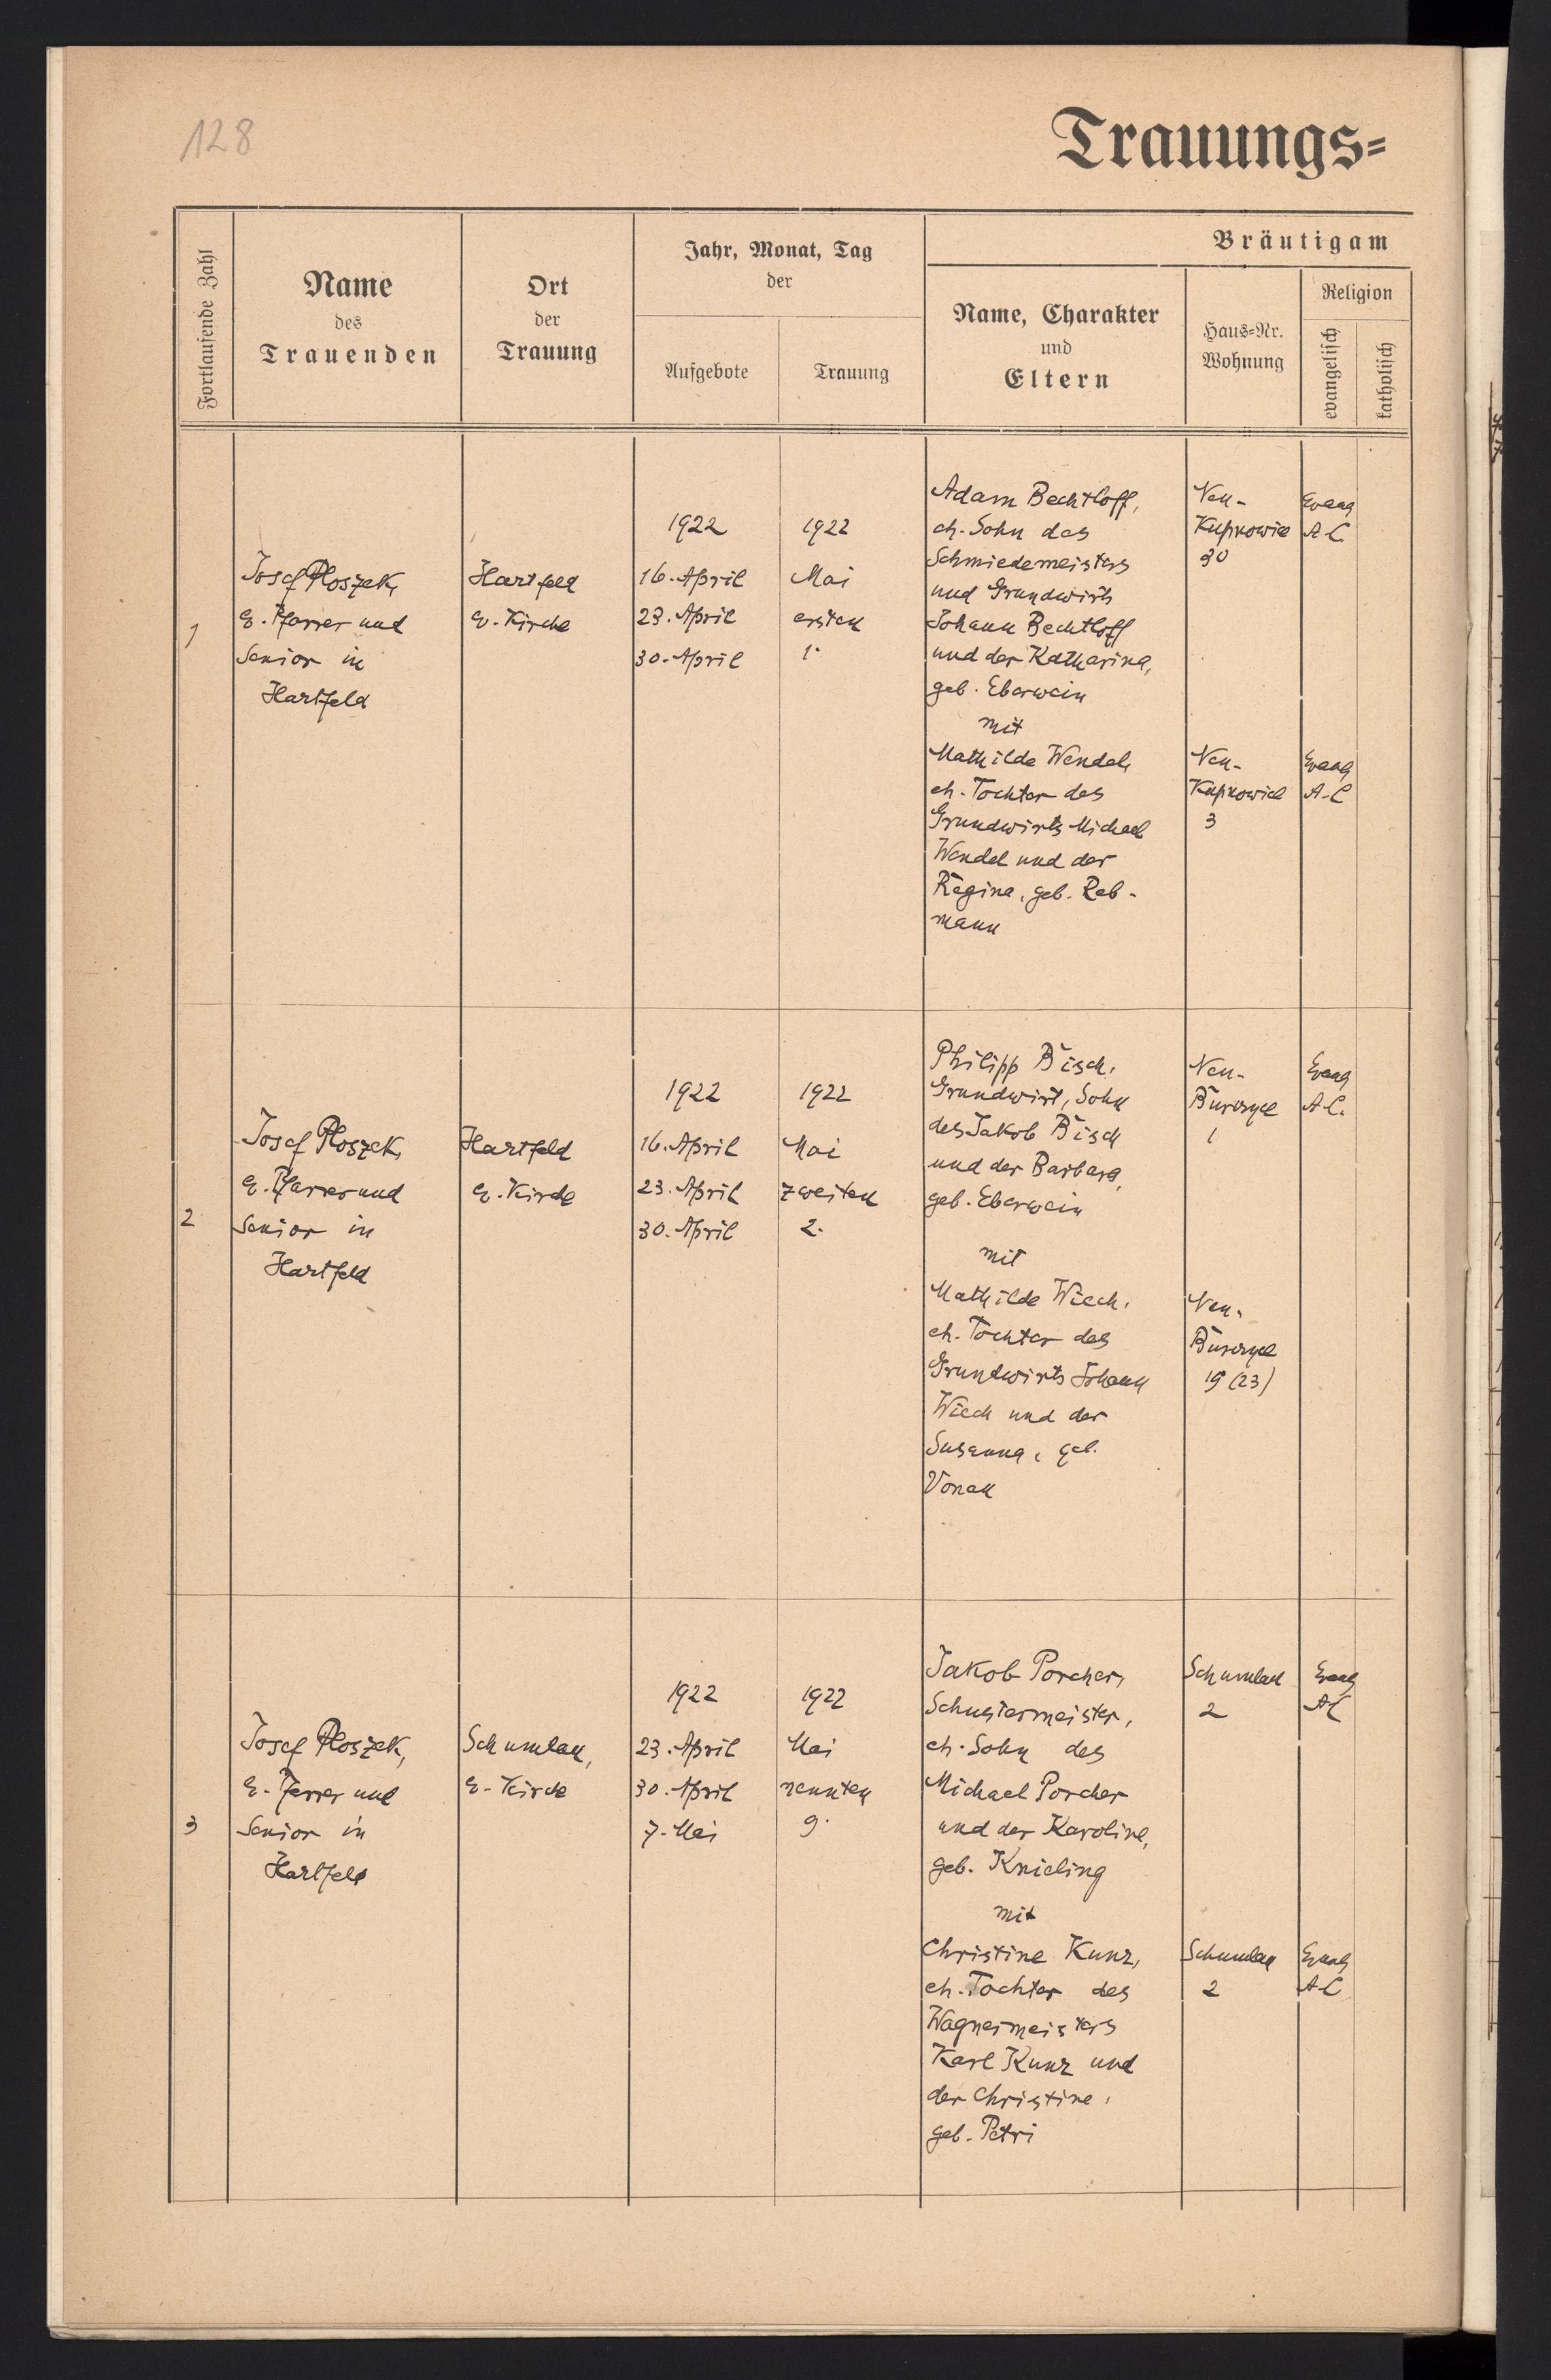 128
Trauungs=
Fortlaufende Zahl
Name
des
Trauenden
Ort
der
Trauung
Jahr, Monat, Tag
der
Aufgebote
Trauung
Bräutigam
Name, Charakter
und
Eltern
Haus=Nr.
Wohnung
Religion
evangelisch
katholisch
1
Josef Ploszek,
E. Pfarrer und
Senior in
Hartfeld
Hartfeld
ev. Kirche
1922
16. April
23. April
30. April
1922
Mai
ersten
1.
Adam Bechtloff,
eh. Sohn des
Schmiedemeisters
und Grundwirts
Johann Bechtloff
und der Katharina,
geb. Eberwein
mit
Mathilde Wendel,
eh. Tochter des
Grundwirts Michael
Wendel und der
Regina, geb. Reb-
mann
Neu-
Kupnowice
30
Evang
A.C.
Neu-
Kupnowice
3
Evang
A.C
2
Josef Ploszek,
E. Pfarrer und
Senior in
Hartfeld
Hartfeld
ev. Kirche
1922
16. April
23. April
30. April
1922
Mai
zweiten
2.
Philipp Bisch,
Grundwirt, Sohn
des Jakob Bisch
und der Barbara,
geb. Eberwein
mit
Mathilde Wiech,
eh. Tochter des
Grundwirts Johann
Wiech und der
Susanna, geb.
Vonau
Neu-
Burczyce
1
Evang
A.C.
Neu-
Burczyce
19 (23)
3
Josef Ploszek,
E. Pfarrer und
Senior in
Hartfeld
Schumlau,
ev. Kirche
1922
23. April
30. April
7. Mai
1922
Mai
neunten
9.
Jakob Porcher,
Schustermeister,
eh. Sohn des
Michael Porcher
und der Karoline,
geb. Knieling
mit
Christine Kunz,
eh. Tochter des
Wagnermeisters
Karl Kunz und
der Christine,
geb. Petri
Schumlau
2
Evang
AC
Schumlau
2
Evang
A.C